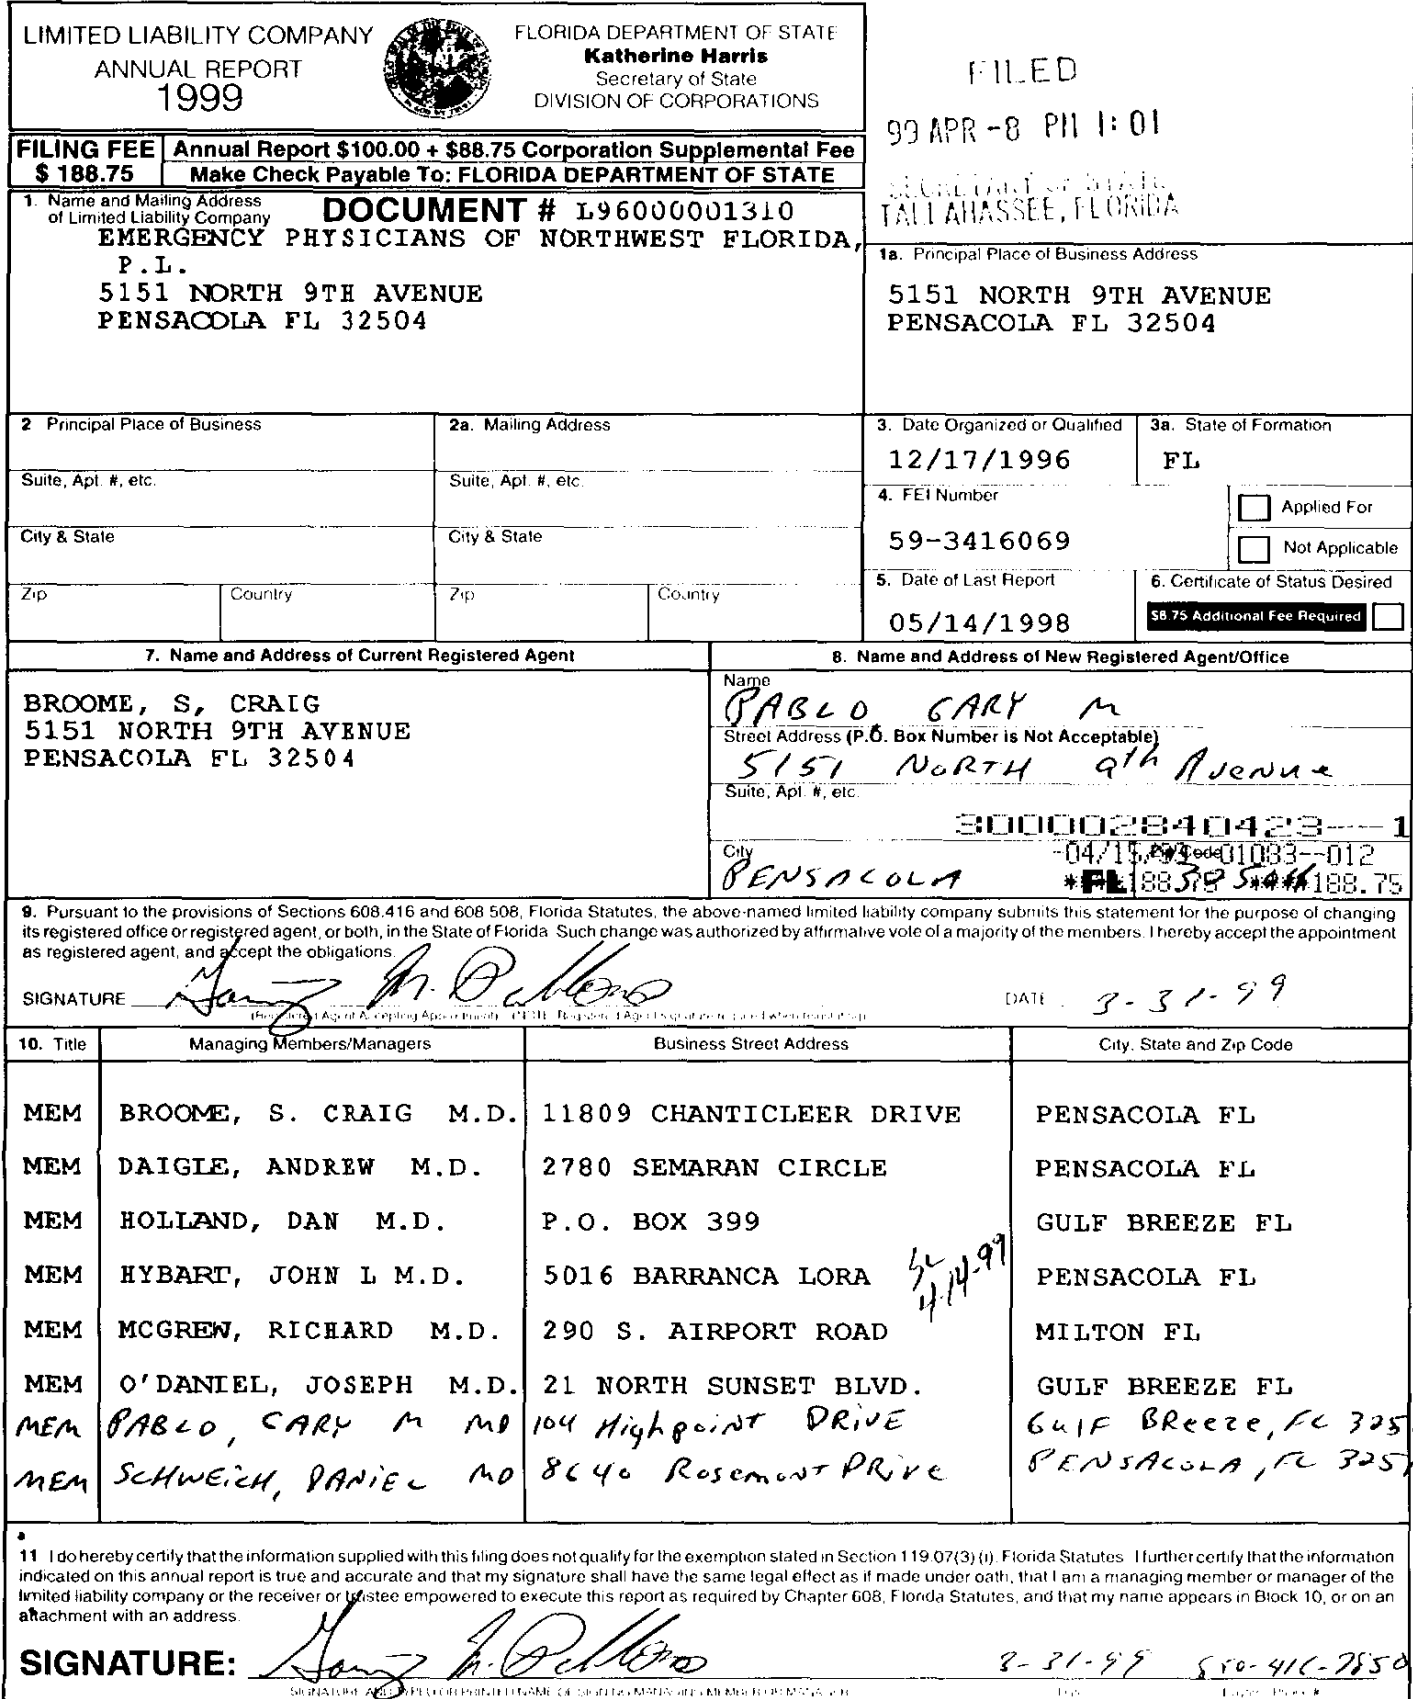 LIMITED LIABILITY COMPANY
ANNUAL REPORT
1999
FLORIDA DEPARTMENT OF STATE
Katherine Harris
Secretary of State
DIVISION OF CORPORATIONS
FILED
99 APR -8 PM 1: 01
SECRETARY OF STATE
TALLAHASSEE, FLORIDA
FILING FEE
$ 188.75
Annual Report $100.00 + $88.75 Corporation Supplemental Fee
Make Check Payable To: FLORIDA DEPARTMENT OF STATE
1. Name and Mailing Address
of Limited Liability Company
DOCUMENT # L96000001310
EMERGENCY PHYSICIANS OF NORTHWEST FLORIDA,
P.L.
5151 NORTH 9TH AVENUE
PENSACOLA FL 32504
1a. Principal Place of Business Address
5151 NORTH 9TH AVENUE
PENSACOLA FL 32504
2 Principal Place of Business
2a. Mailing Address
3. Date Organized or Qualified
12/17/1996
3a. State of Formation
FL
Suite, Apt. #, etc.
Suite, Apt. #, etc.
4. FEI Number
59-3416069
Applied For
Not Applicable
City & State
City & State
5. Date of Last Report
05/14/1998
6. Certificate of Status Desired
$8.75 Additional Fee Required
Zip
Country
Zip
Country
7. Name and Address of Current Registered Agent
BROOME, S, CRAIG
5151 NORTH 9TH AVENUE
PENSACOLA FL 32504
8. Name and Address of New Registered Agent/Office
Name
PABLO, GARY M
Street Address (P.O. Box Number is Not Acceptable)
5151 NORTH 9th Avenue
Suite, Apt. #, etc.
300002840423---1
City
-04/15/99--01083--012
PENSACOLA
FL
188.75 ****188.75
9. Pursuant to the provisions of Sections 608.416 and 608 508, Florida Statutes, the above-named limited liability company submits this statement for the purpose of changing
its registered office or registered agent, or both, in the State of Florida Such change was authorized by affirmative vote of a majority of the members. I hereby accept the appointment
as registered agent, and accept the obligations.
SIGNATURE
DATE 3-31-99
10. Title
Managing Members/Managers
Business Street Address
City, State and Zip Code
MEM BROOME, S. CRAIG M.D. 11809 CHANTICLEER DRIVE PENSACOLA FL
MEM DAIGLE, ANDREW M.D. 2780 SEMARAN CIRCLE PENSACOLA FL
MEM HOLLAND, DAN M.D. P.O. BOX 399 GULF BREEZE FL
MEM HYBART, JOHN L M.D. 5016 BARRANCA LORA PENSACOLA FL
4-14-99
MEM MCGREW, RICHARD M.D. 290 S. AIRPORT ROAD MILTON FL
MEM O'DANIEL, JOSEPH M.D. 21 NORTH SUNSET BLVD. GULF BREEZE FL
MEM PABLO, GARY M MD 104 Highpoint DRIVE Gulf BReeze, FL 325
MEM SCHWEICH, DANIEL MD 8640 Rosemont DRive PENSACOLA, FL 325
11 I do hereby certify that the information supplied with this filing does not qualify for the exemption stated in Section 119.07(3) (i), Florida Statutes I further certify that the information
indicated on this annual report is true and accurate and that my signature shall have the same legal effect as if made under oath, that I am a managing member or manager of the
limited liability company or the receiver or trustee empowered to execute this report as required by Chapter 608, Florida Statutes, and that my name appears in Block 10, or on an
attachment with an address.
SIGNATURE:
3-31-99 850-416-7850